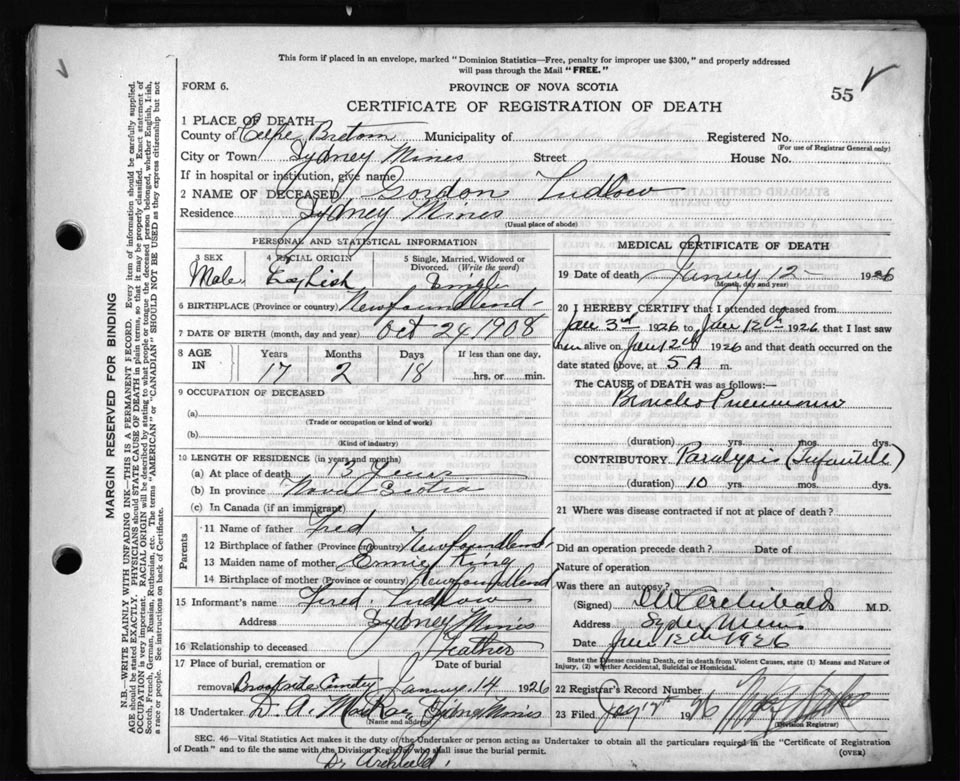 This form if placed in an envelope, marked "Dominion Statistics—Free, penalty for improper use $300," and properly addressed
will pass through the Mail "FREE."
FORM 6.
PROVINCE OF NOVA SCOTIA
55
CERTIFICATE OF REGISTRATION OF DEATH
1 PLACE OF DEATH—
County of Cape Breton Municipality of Registered No.
(For use of Registrar General only)
City or Town Sydney Mines Street House No.
If in hospital or institution, give name
2 NAME OF DECEASED Gordon Ludlow
Residence Sydney Mines
(Usual place of abode)
PERSONAL AND STATISTICAL INFORMATION
3 SEX 4 RACIAL ORIGIN 5 Single, Married, Widowed or Divorced. (Write the word)
Male English Single
6 BIRTHPLACE (Province or country) Newfoundland
7 DATE OF BIRTH (month, day and year) Oct 24, 1908
8 AGE IN Years Months Days If less than one day,
17 2 18 hrs. or min.
9 OCCUPATION OF DECEASED
(a)
(Trade or occupation or kind of work)
(b)
(Kind of industry)
10 LENGTH OF RESIDENCE (in years and months)
(a) At place of death 13 years
(b) In province Nova Scotia
(c) In Canada (if an immigrant)
Parents
11 Name of father Fred
12 Birthplace of father (Province or country) Newfoundland
13 Maiden name of mother King
14 Birthplace of mother (Province or country) Newfoundland
15 Informant's name Fred. Ludlow
Address Sydney Mines
16 Relationship to deceased Feather
17 Place of burial, cremation or Date of burial
removal Brookside 14 1926
18 Undertaker D. A. MacKay Sydney Mines
(Name and address)
MEDICAL CERTIFICATE OF DEATH
19 Date of death 12 1926
(Month, day and year)
20 I HEREBY CERTIFY that I attended deceased from
Jan 3rd 1926 to Jan 12th 1926 that I last saw
him alive on Jan 12th 1926 and that death occurred on the
date stated above, at 5 A m.
The CAUSE of DEATH was as follows:—
Broncho Pneumonia
(duration) yrs. mos. dys.
CONTRIBUTORY Paralysis (Infantile)
(duration) 10 yrs. mos. dys.
21 Where was disease contracted if not at place of death?
Did an operation precede death? Date of
Nature of operation
Was there an autopsy?
(Signed) Archibald M.D.
Address Sydney Mines
Date Jan 12th 1926
State the Disease causing Death, or in death from Violent Causes, state (1) Means and Nature of
Injury, (2) whether Accidental, Suicidal or Homicidal.
22 Registrar's Record Number
23 Filed 1926
(Division Registrar)
SEC. 46—Vital Statistics Act makes it the duty of the Undertaker or person acting as Undertaker to obtain all the particulars required in the "Certificate of Registration
of Death" and to file the same with the Division Registrar who shall issue the burial permit.
(OVER)
Dr Archibald
MARGIN RESERVED FOR BINDING
N.B.—WRITE PLAINLY WITH UNFADING INK—THIS IS A PERMANENT RECORD. Every item of information should be carefully supplied.
AGE should be stated EXACTLY. PHYSICIANS should STATE CAUSE OF DEATH in plain terms, so that it may be properly classified. Exact statement of
OCCUPATION is very important. RACIAL ORIGIN will be described by stating to what people or tongue the deceased person belonged, whether English, Irish,
Scotch, French, German, Russian, Ruthenian, etc. The terms "AMERICAN" or "CANADIAN" SHOULD NOT BE USED as they express citizenship but not
a race or people. See instructions on back of Certificate.